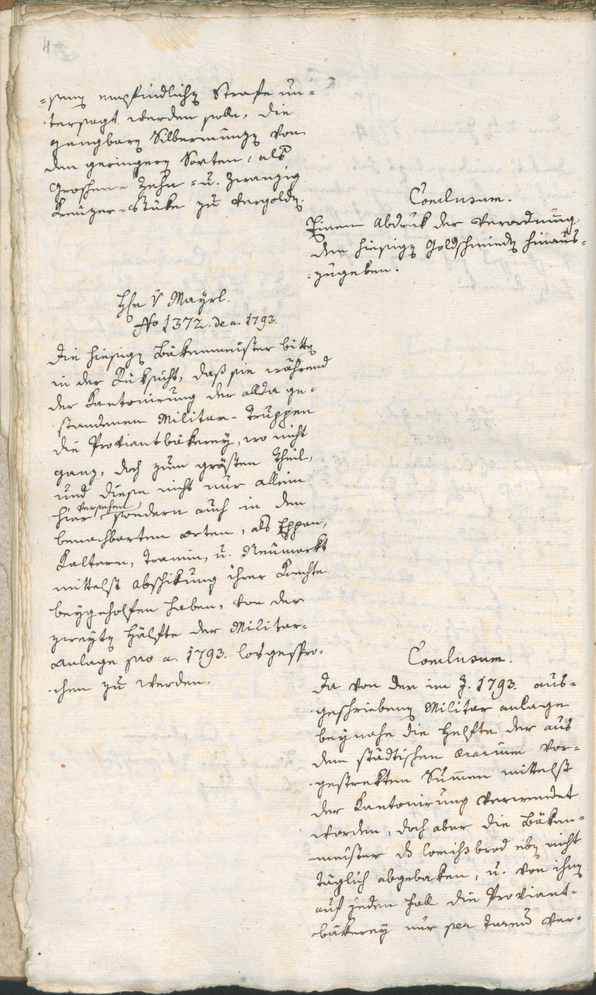 4
-samm empfindlichen Strafe un-
tersagt werden solle, die
gangbaren Silbermünzen von
den geringern Sorten, als
Groschen- Zehn- u. zwanzig
Kreuzer-Stüke zu vergolden.
Conclusum.
Einen Abdruk der Verordnung
den hiesigen Goldschmiden hinaus-
zugeben.
Hr. v Mayrl.
No 1372. de a. 1793.
Die hiesigen Bäkenmeister bitten
in der Rüksicht, daß sie während
der Kantonirung der allda ge-
standenen Militar-Truppen
die Proviantbäkerey, wo nicht
ganz, doch zum grösten Theil,
und diese nicht nur allein
hier versehen sondern auch in den
benachbarten orten, als Eppan,
Kaltern, Tramin, u. Neumarkt
mittelst abschikung ihrer Knechte
beygeholfen haben, von der
zweyten Hälfte der Militar-
anlage pro a. 1793. losgespro-
chen zu werden.
Conclusum.
Da von der im J. 1793. aus-
geschriebenen Militar anlage
beynahe die Helfte der aus
dem städtischen aerarium vor-
gestrekten Summen mittelst
der Kantonirung verwendet
worden, doch aber die Bäken-
meister das brod eben nicht
täglich abgebaken, u. von ihnen
auf jeden Fall die Proviant-
bäkerey nur per ver-